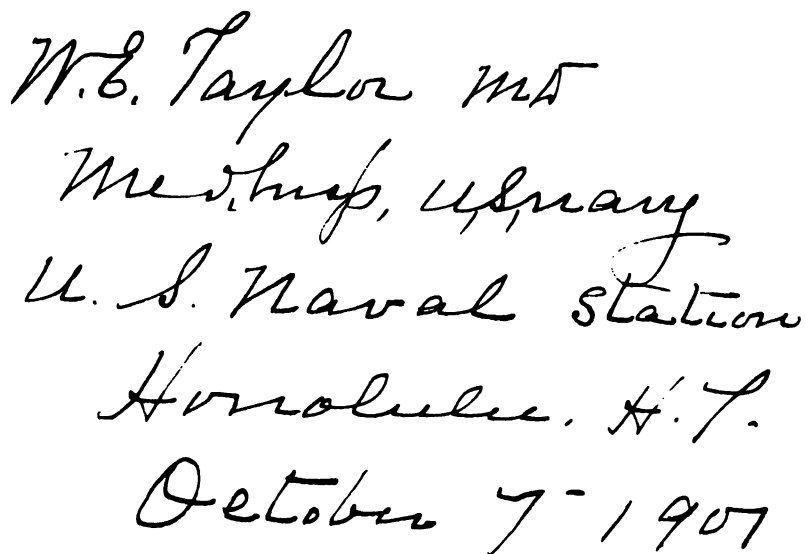 W. E. Taylor MD
Med. Insp, U,S, navy
U. S. Naval Station
Honolulu. H. T.
October 7- 1901